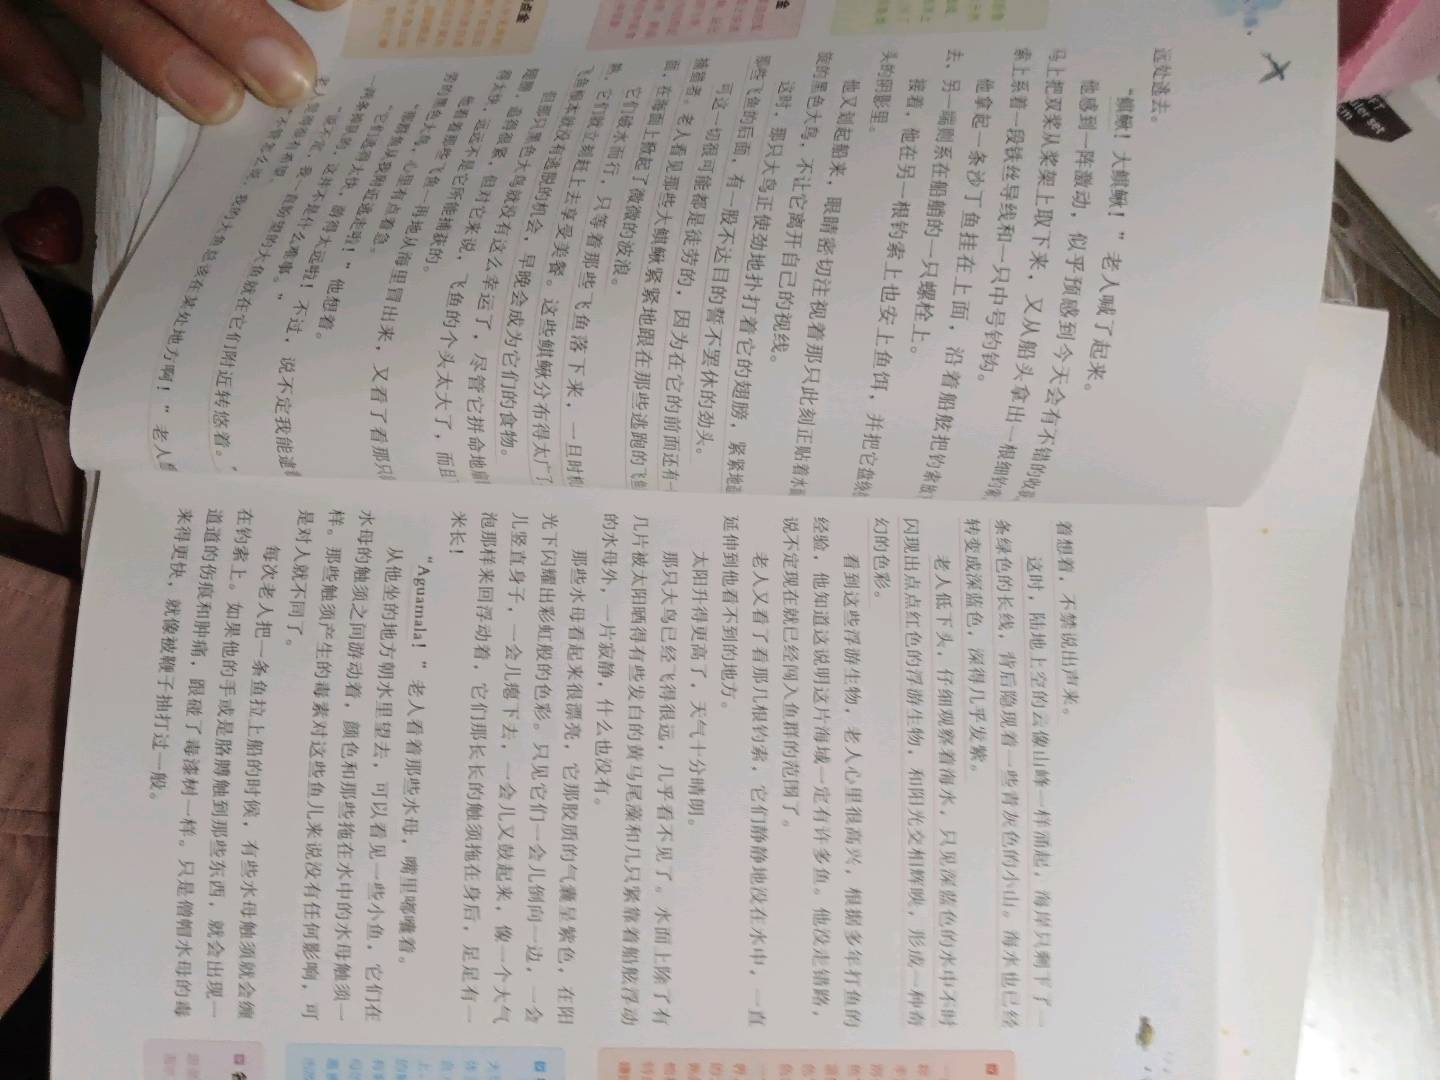 远处逃去。
“鲯鳅！大鲯鳅！”老人喊了起来。
他感到一阵激动，似乎预感到今天会有不错的收
马上把双桨从桨架上取下来，又从船头拿出一根细钓
索上系着一段铁丝导线和一只中号钓钩。
他拿起一条沙丁鱼挂在上面，沿着船舷把钓索放
去，另一端则系在船艄的一只螺栓上。
接着，他在另一根钓索上也安上鱼饵，并把它盘绕
头的阴影里。
他又划起船来，眼睛密切注视着那只此刻正贴着水面
旋的黑色大鸟，不让它离开自己的视线。
这时，那只大鸟正使劲地扑打着它的翅膀，紧紧地
那些飞鱼的后面，有一股不达目的誓不罢休的劲头。
可这一切很可能都是徒劳的，因为在它的前面还有一
捕猎者。老人看见那些大鲯鳅紧紧地跟在那些逃跑的飞鱼
面，在海面上掀起了微微的波浪。
它们破水而行，只等着那些飞鱼落下来，一旦时机
它们就立刻赶上去享受美餐。这些鲯鳅分布得太广了
飞鱼根本就没有逃脱的机会，早晚会成为它们的食物。
但那只黑色大鸟就没有这么幸运了，尽管它拼命地扇
翅膀，追得很紧，但对它来说，飞鱼的个头太大了，而且
得太快，远远不是它所能捕获的。
他看着那些飞鱼一再地从海里冒出来，又看了看那只
劳的黑色大鸟，心里有点着急。
“鲯鳅鱼从我附近逃走啦！”他想着。
“它们逃得太快，游得太远啦！不过，说不定我能逮
一两条掉队的，这并不是什么难事。”
老人
着想着，不禁说出声来。
这时，陆地上空的云像山峰一样涌起，海岸只剩下了一
条绿色的长线，背后隐现着一些青灰色的小山。海水也已经
转变成深蓝色，深得几乎发紫。
老人低下头，仔细观察着海水，只见深蓝色的水中不时
闪现出点点红色的浮游生物，和阳光交相辉映，形成一种奇
幻的色彩。
看到这些浮游生物，老人心里很高兴，根据多年打鱼的
经验，他知道这说明这片海域一定有许多鱼。他没走错路，
说不定现在就已经闯入鱼群的范围了。
老人又看了看那几根钓索，它们静静地没在水中，一直
延伸到他看不到的地方。
太阳升得更高了，天气十分晴朗。
那只大鸟已经飞得很远，几乎看不见了。水面上除了有
几片被太阳晒得有些发白的黄马尾藻和几只紧靠着船舷浮动
的水母外，一片寂静，什么也没有。
那些水母看起来很漂亮，它那胶质的气囊呈紫色，在阳
光下闪耀出彩虹般的色彩。只见它们一会儿倒向一边，一会
儿竖直身子，一会儿瘪下去，一会儿又鼓起来，像一个大气
泡那样来回浮动着，它们那长长的触须拖在身后，足足有一
米长！
“Aguamala！”老人看着那些水母，嘴里嘟囔着。
从他坐的地方朝水里望去，可以看见一些小鱼，它们在
水母的触须之间游动着，颜色和那些拖在水中的水母触须一
样。那些触须产生的毒素对这些鱼儿来说没有任何影响，可
是对人就不同了。
每次老人把一条鱼拉上船的时候，有些水母触须就会缠
在钓索上。如果他的手或是胳膊触到那些东西，就会出现一
道道的伤痕和肿痛，跟碰了毒漆树一样。只是僧帽水母的毒
来得更快，就像被鞭子抽打过一般。